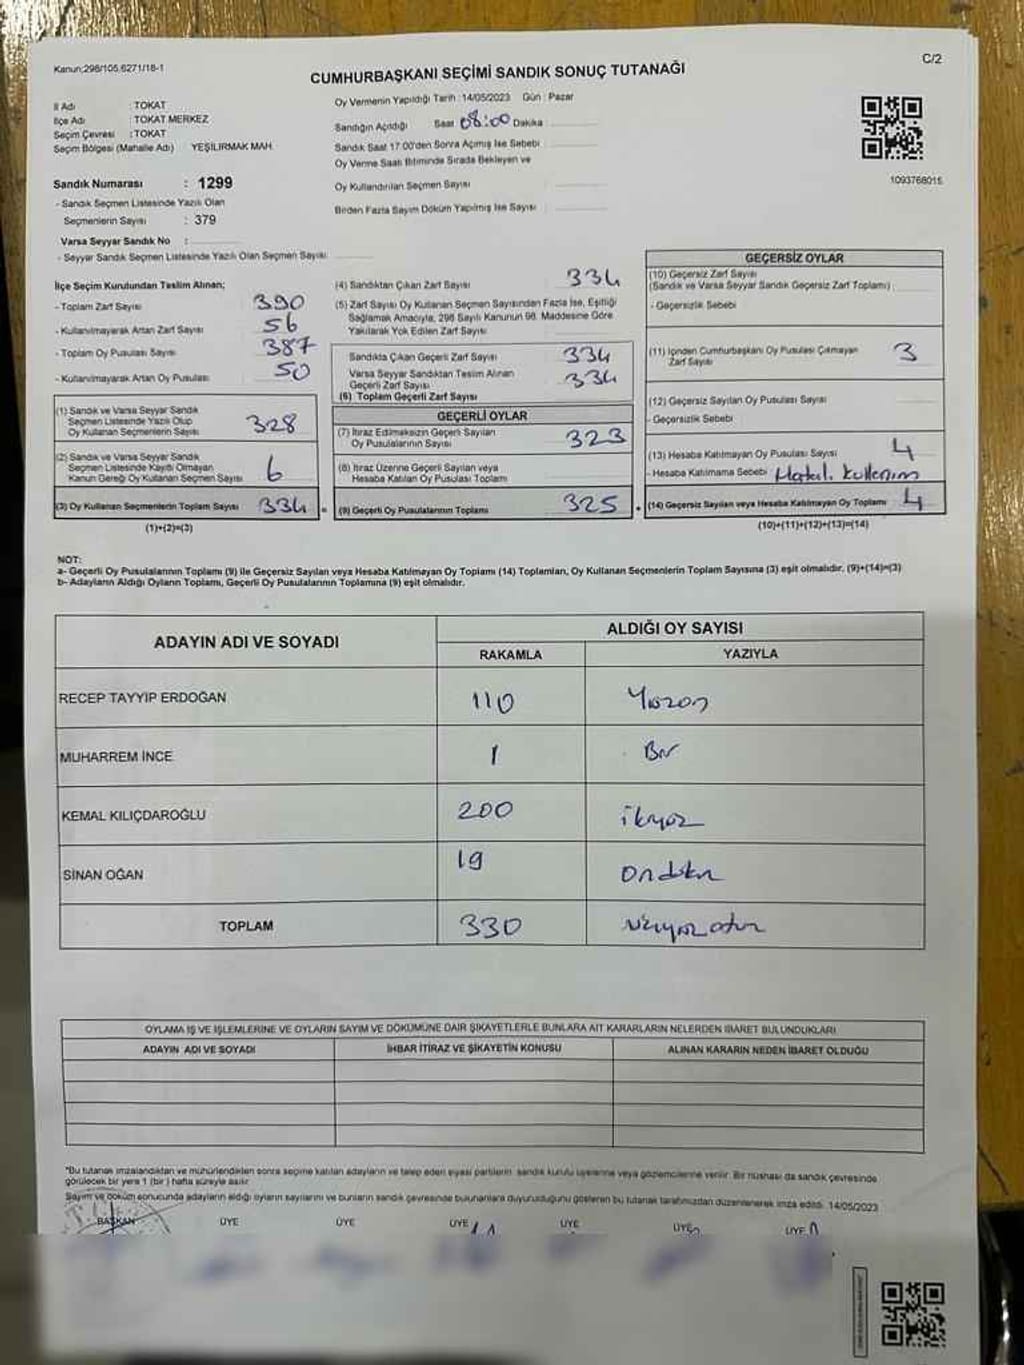 Kanun:298/105,6271/18-1
C/2
CUMHURBAŞKANI SEÇİMİ SANDIK SONUÇ TUTANAĞI
İl Adı : TOKAT
İlçe Adı : TOKAT MERKEZ
Seçim Çevresi : TOKAT
Seçim Bölgesi (Mahalle Adı) YEŞİLIRMAK MAH.
Oy Vermenin Yapıldığı Tarih : 14/05/2023 Gün : Pazar
Sandığın Açıldığı Saat 08:00 Dakika :
Sandık Saat 17:00'den Sonra Açımış İse Sebebi :
Oy Verme Saati Bitiminde Sırada Bekleyen ve
Oy Kullandırılan Seçmen Sayısı
Birden Fazla Sayım Döküm Yapılmış İse Sayısı :
1093768015
Sandık Numarası : 1299
- Sandık Seçmen Listesinde Yazılı Olan
Seçmenlerin Sayısı : 379
Varsa Seyyar Sandık No :
- Seyyar Sandık Seçmen Listesinde Yazılı Olan Seçmen Sayısı:
İlçe Seçim Kurulundan Teslim Alınan;
- Toplam Zarf Sayısı : 390
- Kullanılmayarak Artan Zarf Sayısı : 56
- Toplam Oy Pusulası Sayısı : 387
- Kullanılmayarak Artan Oy Pusulası: 50
(1) Sandık ve Varsa Seyyar Sandık
Seçmen Listesinde Yazılı Olup
Oy Kullanan Seçmenlerin Sayısı 328
(2) Sandık ve Varsa Seyyar Sandık
Seçmen Listesinde Kayıtlı Olmayan
Kanun Gereği Oy Kullanan Seçmen Sayısı 6
(3) Oy Kullanan Seçmenlerin Toplam Sayısı 334 =
(1)+(2)=(3)
(4) Sandıktan Çıkan Zarf Sayısı 334
(5) Zarf Sayısı Oy Kullanan Seçmen Sayısından Fazla İse, Eşitliği
Sağlamak Amacıyla, 298 Sayılı Kanunun 98. Maddesine Göre
Yakılarak Yok Edilen Zarf Sayısı
Sandıkta Çıkan Geçerli Zarf Sayısı 334
Varsa Seyyar Sandıktan Teslim Alınan
Geçerli Zarf Sayısı 334
(6) Toplam Geçerli Zarf Sayısı
GEÇERLİ OYLAR
(7) İtiraz Edilmeksizin Geçerli Sayılan
Oy Pusulalarının Sayısı 323
(8) İtiraz Üzerine Geçerli Sayılan veya
Hesaba Katılan Oy Pusulası Toplamı
(9) Geçerli Oy Pusulalarının Toplamı 325 +
GEÇERSİZ OYLAR
(10) Geçersiz Zarf Sayısı
(Sandık ve Varsa Seyyar Sandık Geçersiz Zarf Toplamı)
- Geçersizlik Sebebi
(11) İçinden Cumhurbaşkanı Oy Pusulası Çıkmayan
Zarf Sayısı 3
(12) Geçersiz Sayılan Oy Pusulası Sayısı
- Geçersizlik Sebebi
(13) Hesaba Katılmayan Oy Pusulası Sayısı 4
- Hesaba Katılmama Sebebi Hatalı Kullanım
(14) Geçersiz Sayılan veya Hesaba Katılmayan Oy Toplamı 4
(10)+(11)+(12)+(13)=(14)
NOT:
a- Geçerli Oy Pusulalarının Toplamı (9) ile Geçersiz Sayılan veya Hesaba Katılmayan Oy Toplamı (14) Toplamları, Oy Kullanan Seçmenlerin Toplam Sayısına (3) eşit olmalıdır. (9)+(14)=(3)
b- Adayların Aldığı Oyların Toplamı, Geçerli Oy Pusulalarının Toplamına (9) eşit olmalıdır.
ADAYIN ADI VE SOYADI ALDIĞI OY SAYISI
RAKAMLA YAZIYLA
RECEP TAYYIP ERDOĞAN 110 Yüzon
MUHARREM İNCE 1 Bir
KEMAL KILIÇDAROĞLU 200 ikiyüz
SİNAN OĞAN 19 Ondokuz
TOPLAM 330
OYLAMA İŞ VE İŞLEMLERİNE VE OYLARIN SAYIM VE DÖKÜMÜNE DAİR ŞİKAYETLERLE BUNLARA AİT KARARLARIN NELERDEN İBARET BULUNDUKLARI
ADAYIN ADI VE SOYADI İHBAR İTİRAZ VE ŞİKAYETİN KONUSU ALINAN KARARIN NEDEN İBARET OLDUĞU
*Bu tutanak imzalandıktan ve mühürlendikten sonra seçime katılan adayların ve talep eden siyasi partilerin sandık kurulu üyelerine veya gözlemcilerine verilir. Bir nüshası da sandık çevresinde
görülecek bir yere 1 (bir) hafta süreyle asılır.
Sayım ve döküm sonucunda adayların aldığı oyların sayılarını ve bunların sandık çevresinde bulunanlara duyurulduğunu gösteren bu tutanak tarafımızdan düzenlenerek imza edildi. 14/05/2023
BAŞKAN ÜYE ÜYE ÜYE ÜYE ÜYE ÜYE